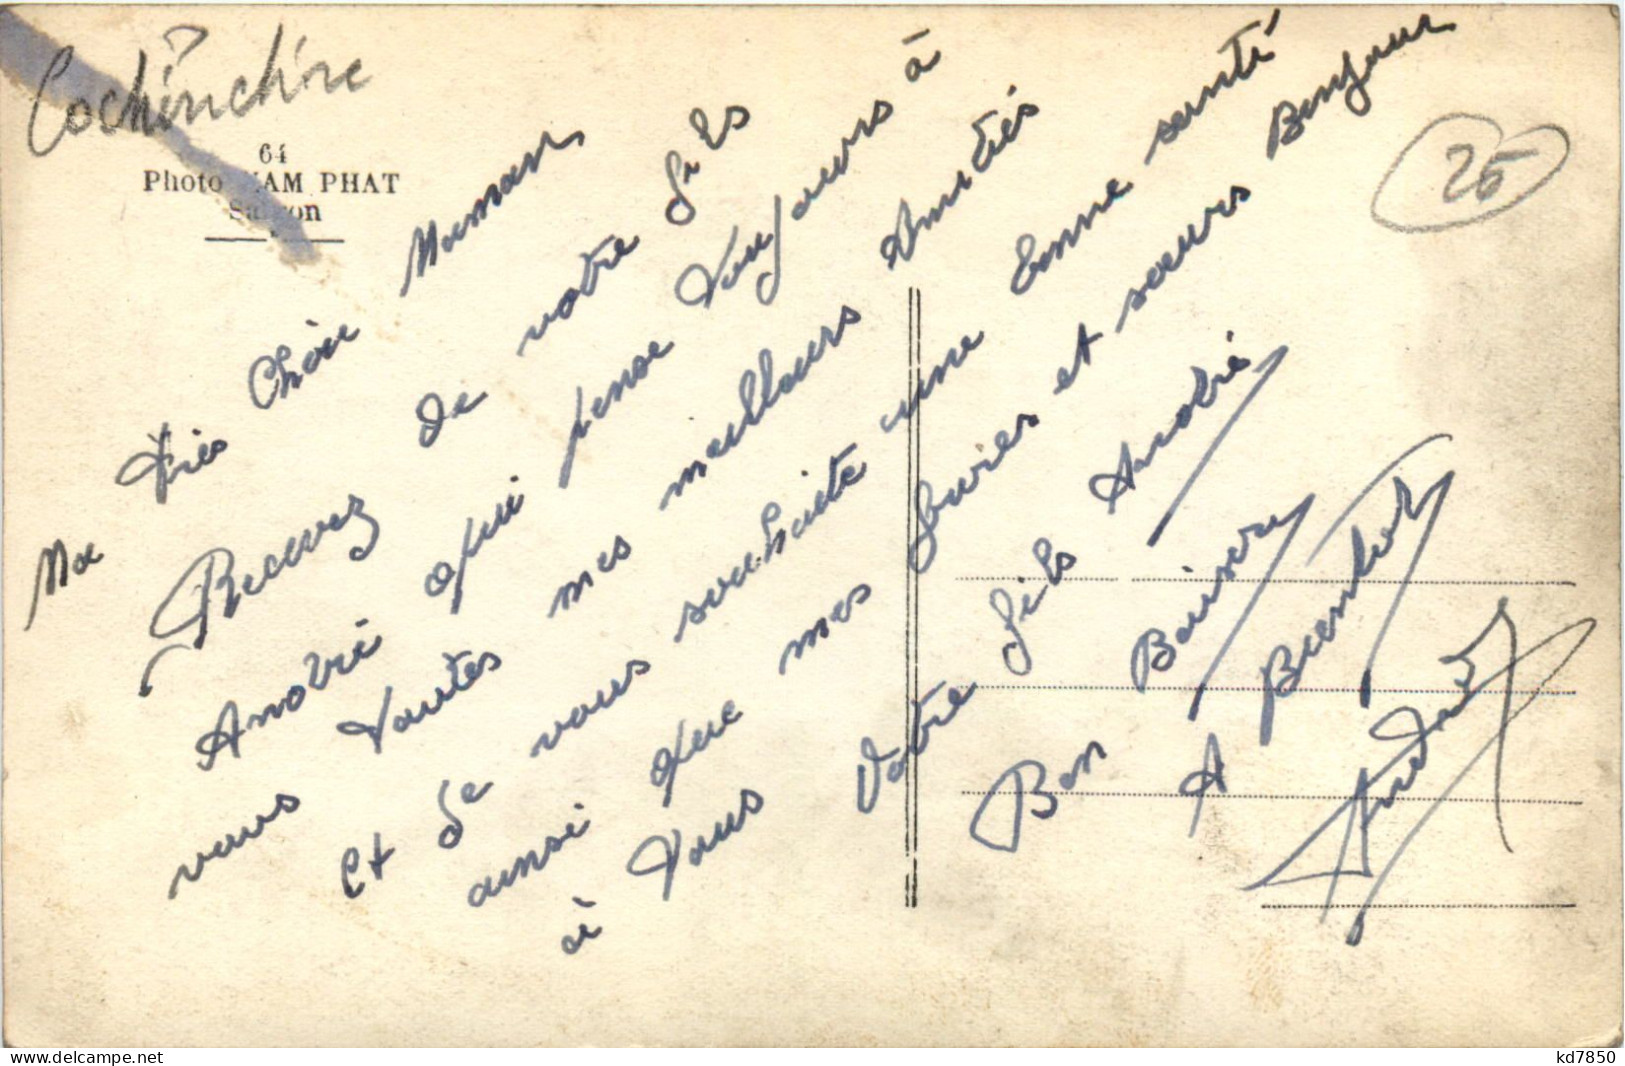 Cochinchine
64
Photo NAM PHAT
Saigon
25
Ma très Chère Maman
Recevez de votre fils
André qui pense toujours à
vous toutes mes meilleurs Amitiés
et je vous souhaite une bonne santé
ainsi que mes frères et sœurs Bonjour
à tous Votre fils André
Bon Baiser
A Bientot
André
www.delcampe.net
kd7850